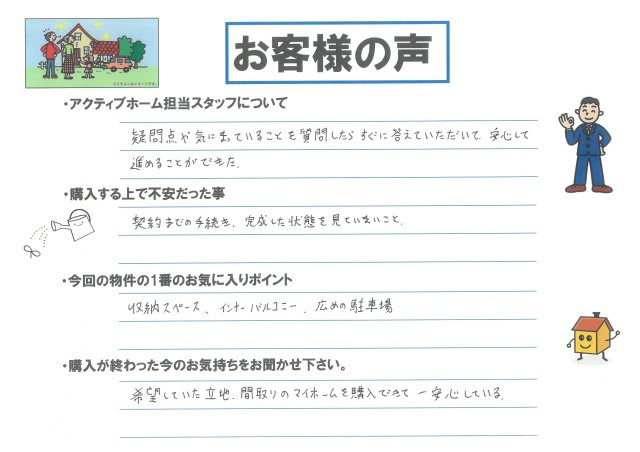 お客様の声
・アクティブホーム担当スタッフについて
疑問点や気になっていることを質問したらすぐに答えていただいて、安心して
進めることができた。
・購入する上で不安だった事
契約までの手続き、完成した状態を見ていないこと。
・今回の物件の1番のお気に入りポイント
収納スペース、インナーバルコニー、広めの駐車場
・購入が終わった今のお気持ちをお聞かせ下さい。
希望していた立地、間取りのマイホームを購入できて一安心している。